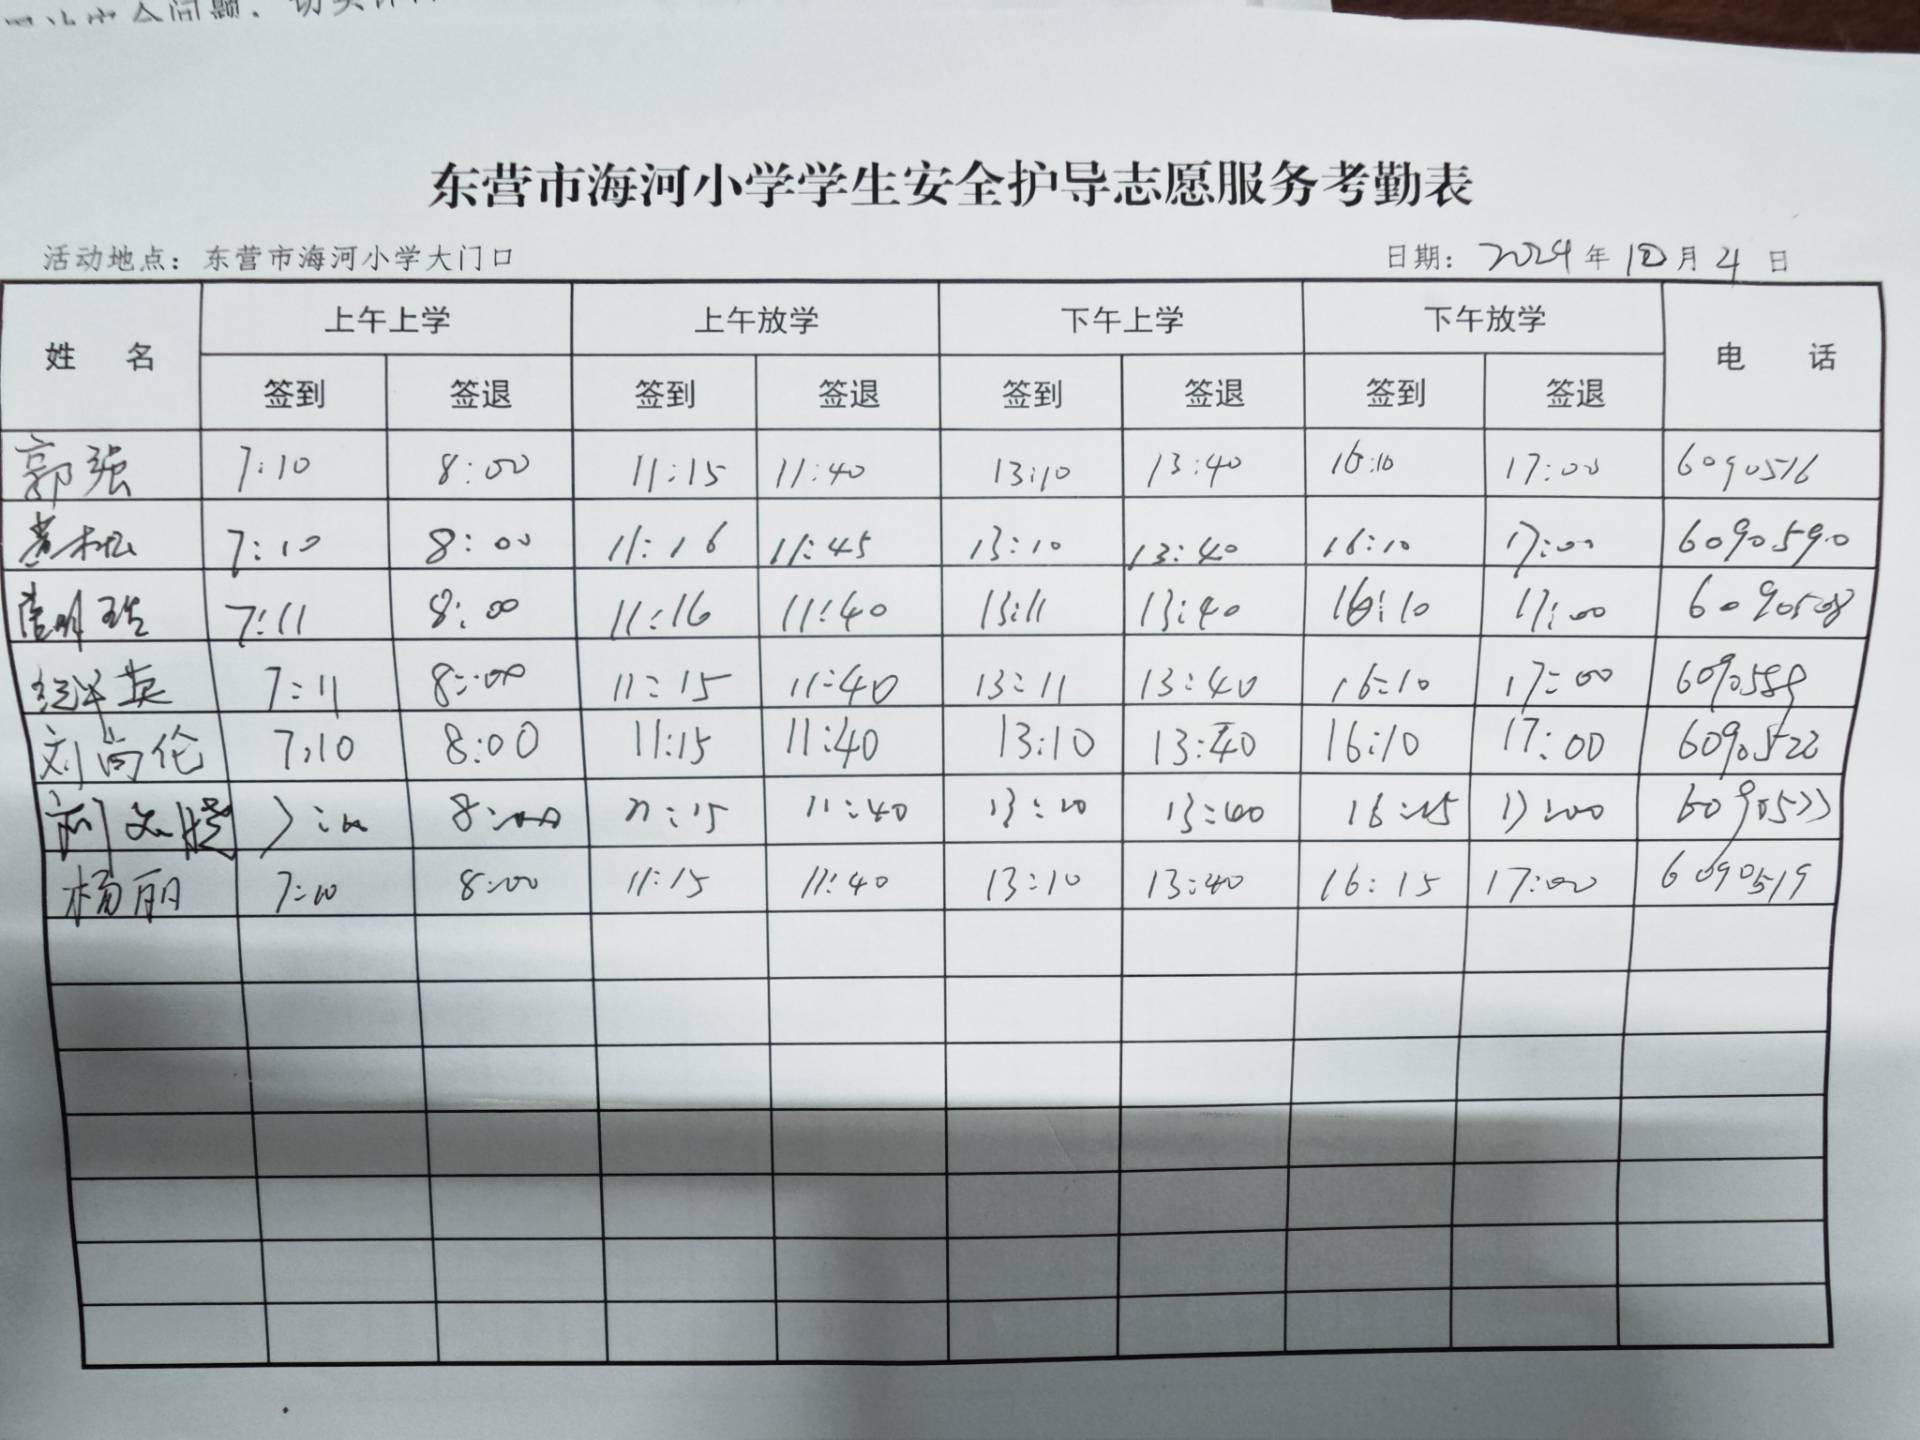 东营市海河小学学生安全护导志愿服务考勤表
活动地点：东营市海河小学大门口 日期：2024年10月4日
姓 名 上午上学 上午放学 下午上学 下午放学 电 话
签到 签退 签到 签退 签到 签退 签到 签退
郭强 7:10 8:00 11:15 11:40 13:10 13:40 16:10 17:00 6090516
黄松 7:10 8:00 11:16 11:45 13:10 13:40 16:10 17:00 6090590
7:11 8:00 11:16 11:40 13:11 13:40 16:10 17:00 6090508
英 7:11 8:00 11:15 11:40 13:11 13:40 16:10 17:00 6090589
刘尚伦 7:10 8:00 11:15 11:40 13:10 13:40 16:10 17:00 6090522
文 8:00 11:15 11:40 13:10 13:40 16:15 17:00 60905
杨丽 7:10 8:00 11:15 11:40 13:10 13:40 16:15 17:00 6090519